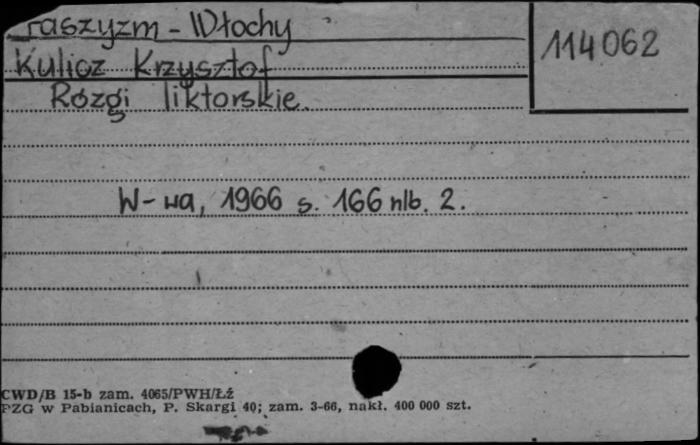 Faszyzm - Włochy
114062
Kulicz Krzysztof
Rózgi liktorskie.
W-wa, 1966 s. 166 nlb. 2.
CWD/B 15-b zam. 4065/PWH/Łź
PZG w Pabianicach, P. Skargi 40; zam. 3-66, nakł. 400 000 szt.